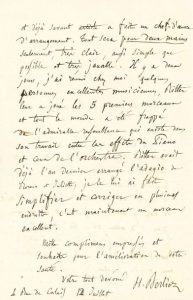 et déjà savant artiste a fait un chef-d'œuvre
d'arrangement. Tout sera pour deux mains
seulement, très clair, aussi simple que
possible et très jouable. Il y a deux
jours, j'ai réuni chez moi quelques
personnes, excellentes musiciennes, Ritter
leur a joué les 5 premiers morceaux
et tout le monde a été frappé
de l'admirable intelligence qui existe dans
son travail entre les effets du Piano
et ceux de l'orchestre. Ritter avait
déjà l'an dernier arrangé l'Adagio de
Roméo et Juliette, je le lui ai fait
simplifier et corriger en plusieurs
endroits, c'est maintenant un morceau
excellent.
Mille compliments empressés et
souhaits pour l'amélioration de votre
santé.
Votre tout dévoué
H. Berlioz
4 Rue de Calais 12 Juillet